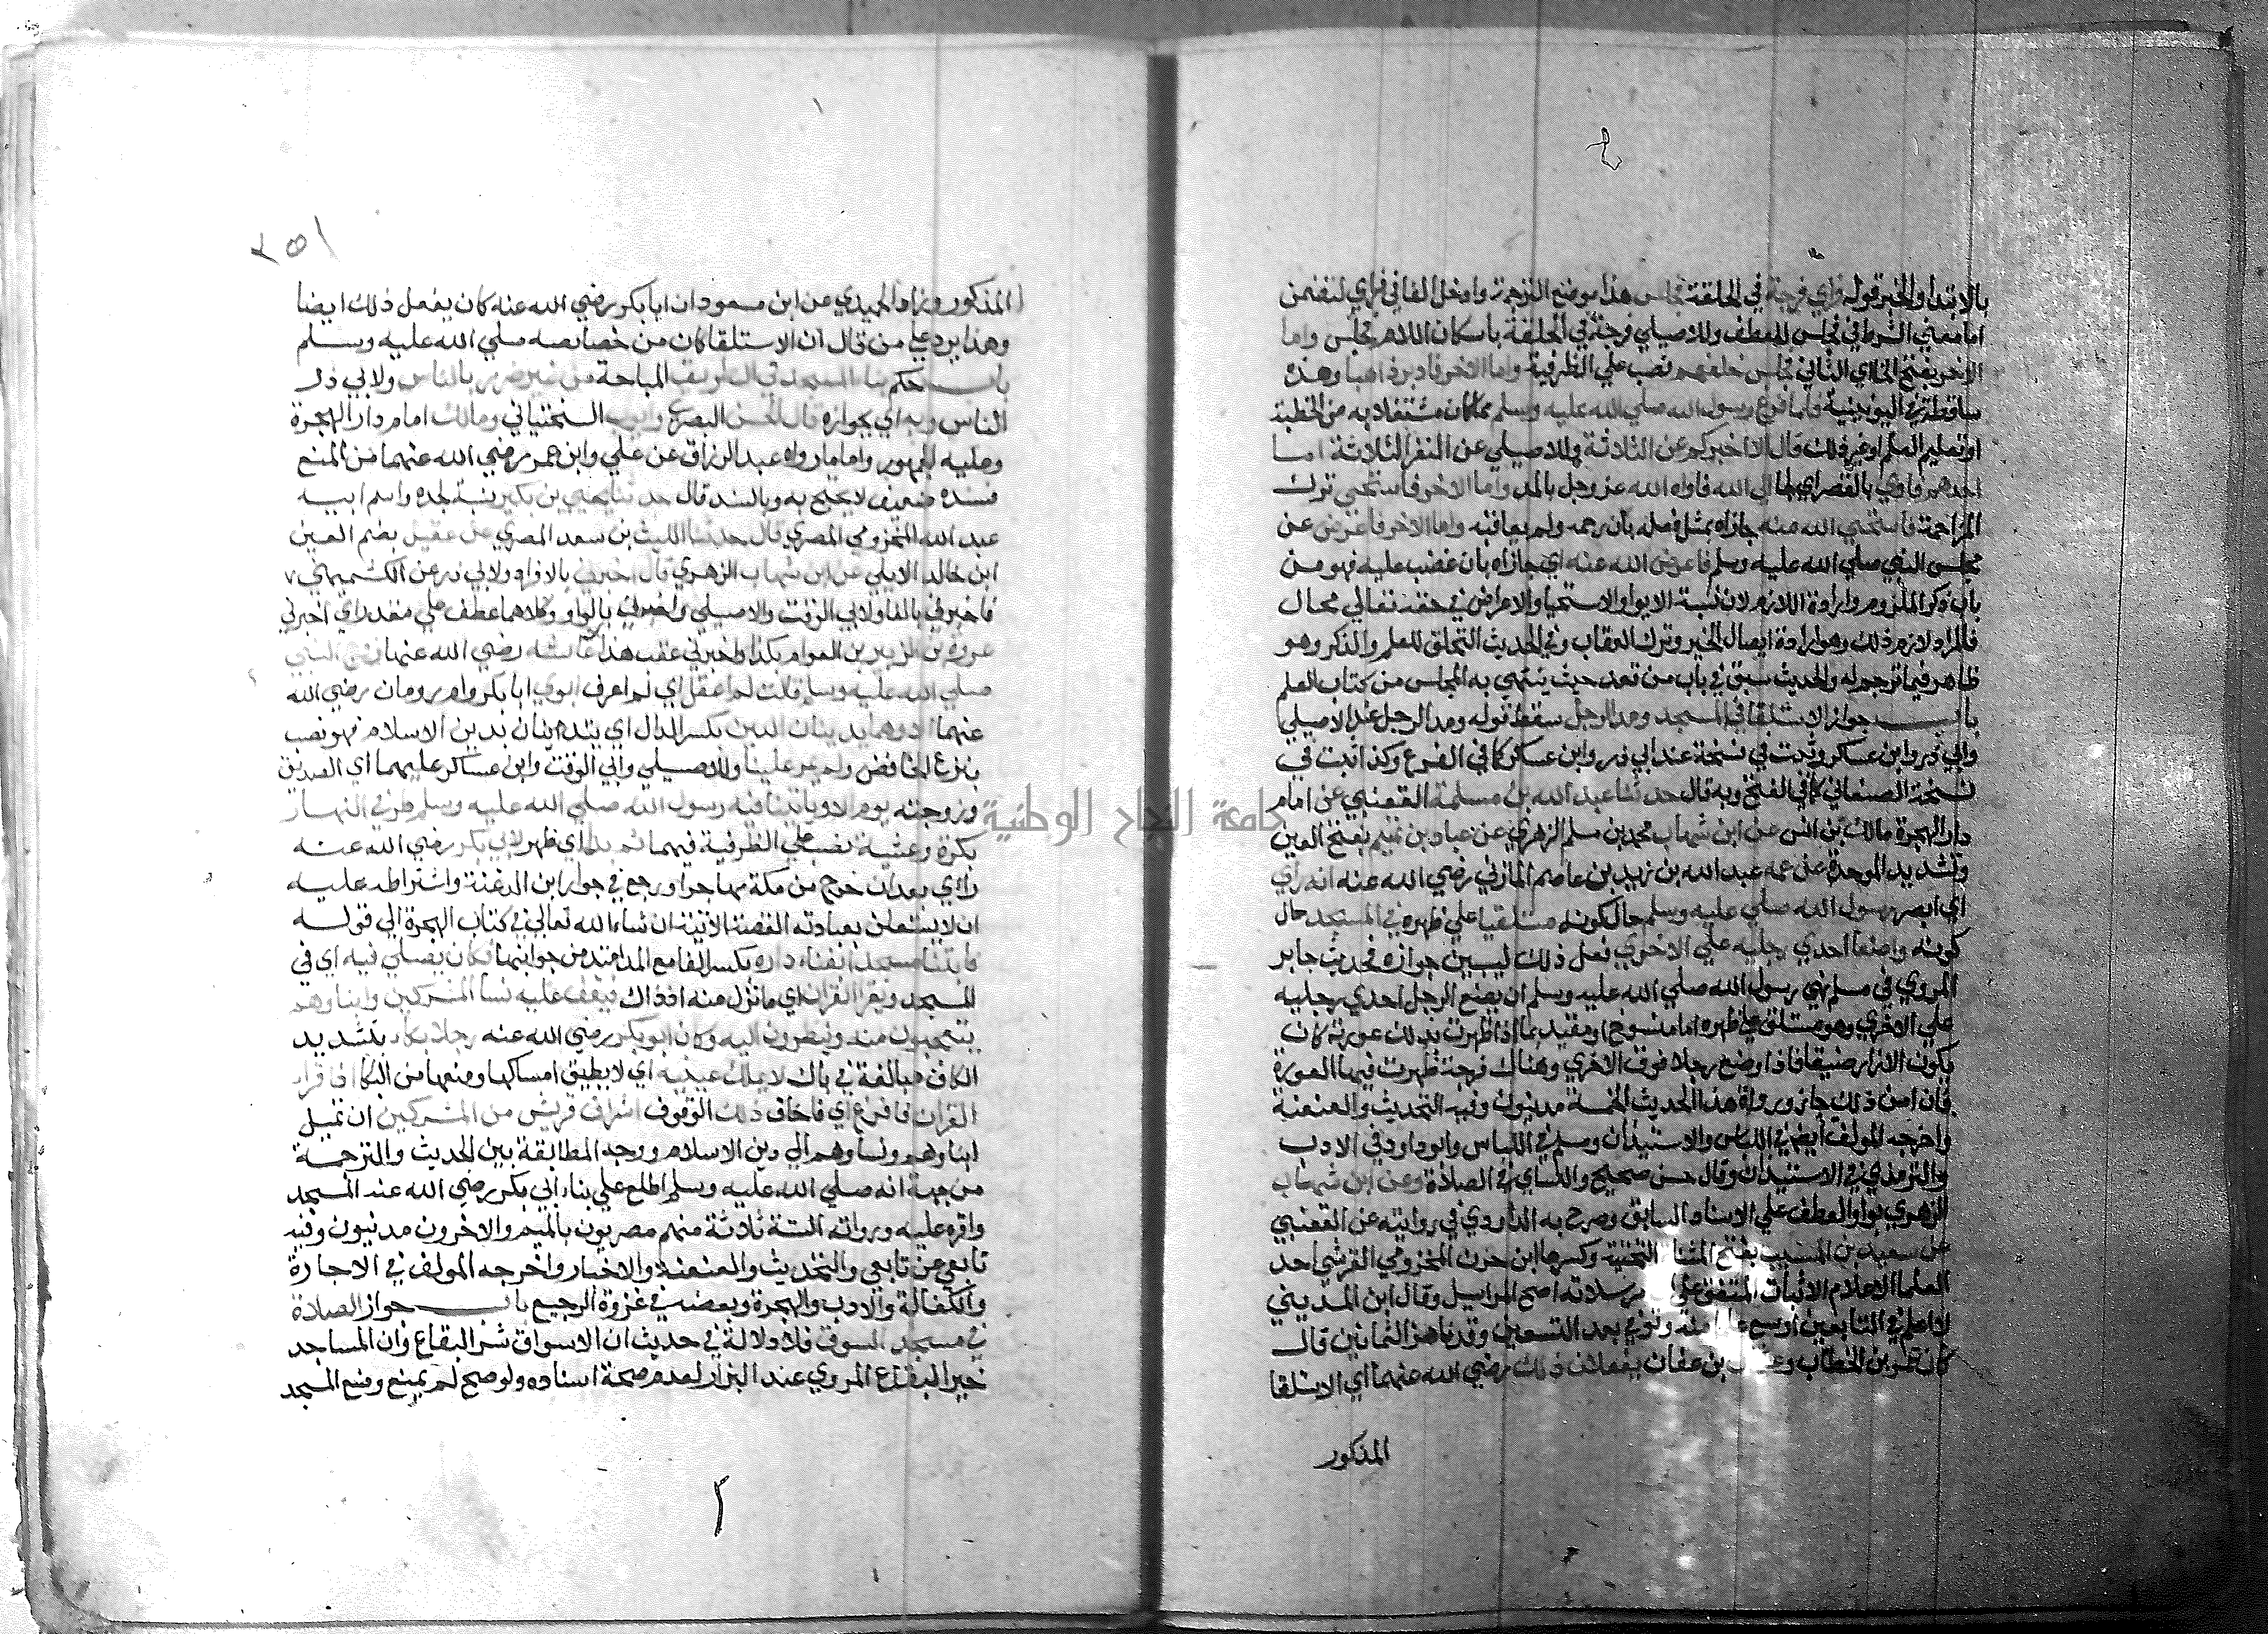 بالابتدا والخبر قوله فراي فرجة في الحلقة فجلس هذا موضع الترجمة وادخل الفا في فراي لتضمن
اما معني الشرط في فجلس للعطف وللاصيلي فرجة في الحلقة باسكان اللام فجلس واما
الاخر بفتح الخاي الثاني فجلس خلفهم نصب علي الظرفية واما الاخر فادبر ذاهبا وهذه
ساقطة في اليونينية فلما فرغ رسول الله صلي الله عليه وسلم مما كان مشتغلا به من الخطبة
او تعليم العلم او غير ذلك قال الا اخبركم عن الثلاثة وللاصيلي عن النفر الثلاثة اما
احدهم فاوي بالقصر اي لجا الي الله فاواه الله عز وجل بالمد واما الاخر فاستحيي ترك
المزاحمة فاستحيي الله منه جازاه بمثل فعله بان رحمه ولم يعاقبه واما الاخر فاعرض عن
مجلس النبي صلي الله عليه وسلم فاعرض الله عنه اي جازاه بان غضب عليه فهو من
باب ذكر الملزوم وارادة اللازم لان نسبة الايوا والاستحيا والاعراض في حقه تعالي محال
فالمراد لازم ذلك وهو ارادة ايصال الخير وترك العقاب وفي الحديث التحلق للعلم والذكر وهو
ظاهر فيما ترجم له والحديث سبق في باب من قعد حيث ينتهي به المجلس من كتاب العلم
باب جواز الاستلقا في المسجد ومد الرجل سقط قوله ومد الرجل عند الاصيلي
وابي ذر وابن عساكر وثبت في نسخة عند ابي ذر وابن عساكر كما في الفرع وكذا ثبت في
نسخة الصغاني كما في الفتح وبه قال حدثنا عبد الله بن مسلمة القعنبي عن امام
دار الهجرة مالك بن انس عن ابن شهاب محمد بن مسلم الزهري عن عباد بن تميم بفتح العين
وتشديد الموحدة عن عمه عبد الله بن زيد بن عاصم المازني رضي الله عنه انه راي
اي ابصر رسول الله صلي عليه وسلم حال كونه مستلقيا علي ظهره في المسجد حال
كونه واضعا احدي رجليه علي الاخري فعل ذلك ليبين جوازه فحديث جابر
المروي في مسلم نهي رسول الله صلي الله عليه وسلم ان يضع الرجل احدي رجليه
علي الاخري وهو مستلق علي ظهره اما منسوخ او مقيد بما اذا ظهرت بذلك عورته كان
يكون الازار ضيقا فاذا وضع رجلا فوق الاخري وهناك فرجة ظهرت فيها العورة
فان امن ذلك جاز ورواة هذا الحديث الخمسة مدنيون وفيه التحديث والعنعنة
واخرجه المولف ايضا في اللباس والاستيذان ومسلم في اللباس وابو داود في الادب
والترمذي في الاستيذان وقال حسن صحيح والنساي في الصلاة وعن ابن شهاب
الزهري بواو العطف علي الاسناد السابق وصرح به الداودي في روايته عن القعنبي
عن سعيد بن المسيب بفتح المثناة التحتية وكسرها ابن حزن المخزومي القرشي احد
العلما الاعلام الاثبات المتفق علي مرسلاته اصح المراسيل وقال ابن المديني
لا اعلم في التابعين اوسع علما منه وتوفي بعد التسعين وقد ناهز الثمانين قال
كان عمر بن الخطاب و بن عفان يفعلان ذلك رضي الله عنهما اي الاستلقا
المذكور
٢٥١
المذكور وزاد الحميدي عن ابن مسعود ان ابا بكر رضي الله عنه كان يفعل ذلك ايضا
وهذا يرد علي من قال ان الاستلقا كان من خصايصه صلي الله عليه وسلم
باب حكم بنا المسجد في الطريق المباحة من غير ضرر بالناس ولابي ذر
الناس وبه اي بجوازه قال الحسن البصري وايوب السختياني ومالك امام دار الهجرة
وعليه الجمهور واما ما رواه عبد الرزاق عن علي وابن عمر رضي الله عنهما من المنع
فسنده ضعيف لا يحتج به وبالسند قال حدثنا يحيي بن بكير نسبة لجده واسم ابيه
عبد الله المخزومي المصري قال حدثنا الليث بن سعد المصري عن عقيل بضم العين
ابن خالد الايلي عن ابن شهاب الزهري قال اخبرني بالافراد ولابي ذر عن الكشميهني
فاخبرني بالفا ولابي الوقت والاصيلي واخبرني بالواو وكلاهما عطف علي مقدر اي اخبرني
عروة بن الزبير بن العوام بكذا واخبرني عقب هذا عايشة رضي الله عنها زوج النبي
صلي الله عليه وسلم قالت لم اعقل اي لم اعرف ابوي ابا بكر وام رومان رضي الله
عنهما الا وهما يدينان الدين بكسر الدال اي يتدينان بدين الاسلام فهو نصب
بنزع الخافض ولم يمر علينا وللاصيلي وابي الوقت وابن عساكر عليهما اي الصديق
وزوجته يوم الا وياتينا فيه رسول الله صلي الله عليه وسلم طرفي النهار
بكرة وعشية نصب علي الظرفية فيهما ثم بدا اي ظهر لابي بكر رضي الله عنه
راي بعد ان خرج من مكة مهاجرا ورجع في جوار ابن الدغنة واشتراطه عليه
ان لا يستعلن بعبادته القصة الاتية ان شاء الله تعالي في كتاب الهجرة الي قوله
فابتنا مسجدا بفناء داره بكسر الفا مع المد ما امتد من جوانبها فكان يصلي فيه اي في
المسجد ويقرا القران اي ما نزل منه اذ ذاك فيقف عليه نسا المشركين وابناوهم
يتعجبون منه وينظرون اليه وكان ابو بكر رضي الله عنه رجلا بكاء بتشديد
الكاف مبالغة في باك لا يملك عينيه اي لا يطيق امساكها ومنعها من البكا اذا قرا
القران فافزع اي فاخاف ذلك الوقوف اشراف قريش من المشركين ان تميل
ابناوهم ونساوهم الي دين الاسلام ووجه المطابقة بين الحديث والترجمة
من جهة انه صلي الله عليه وسلم اطلع علي بناء ابي بكر رضي الله عنه المسجد
واقره عليه ورواته الستة ثلاثة منهم مصريون بالميم والاخرون مدنيون وفيه
تابعي عن تابعي والتحديث والعنعنة والاخبار واخرجه المولف في الاجارة
والكفالة والادب والهجرة وبعضه في غزوة الرجيع باب جواز الصلاة
في مسجد السوق فلا دلالة في حديث ان الاسواق شر البقاع وان المساجد
خير البقاع المروي عند البزار لعدم صحة اسناده ولو صح لم يمنع وضع المسجد
جامعة النجاح الوطنية